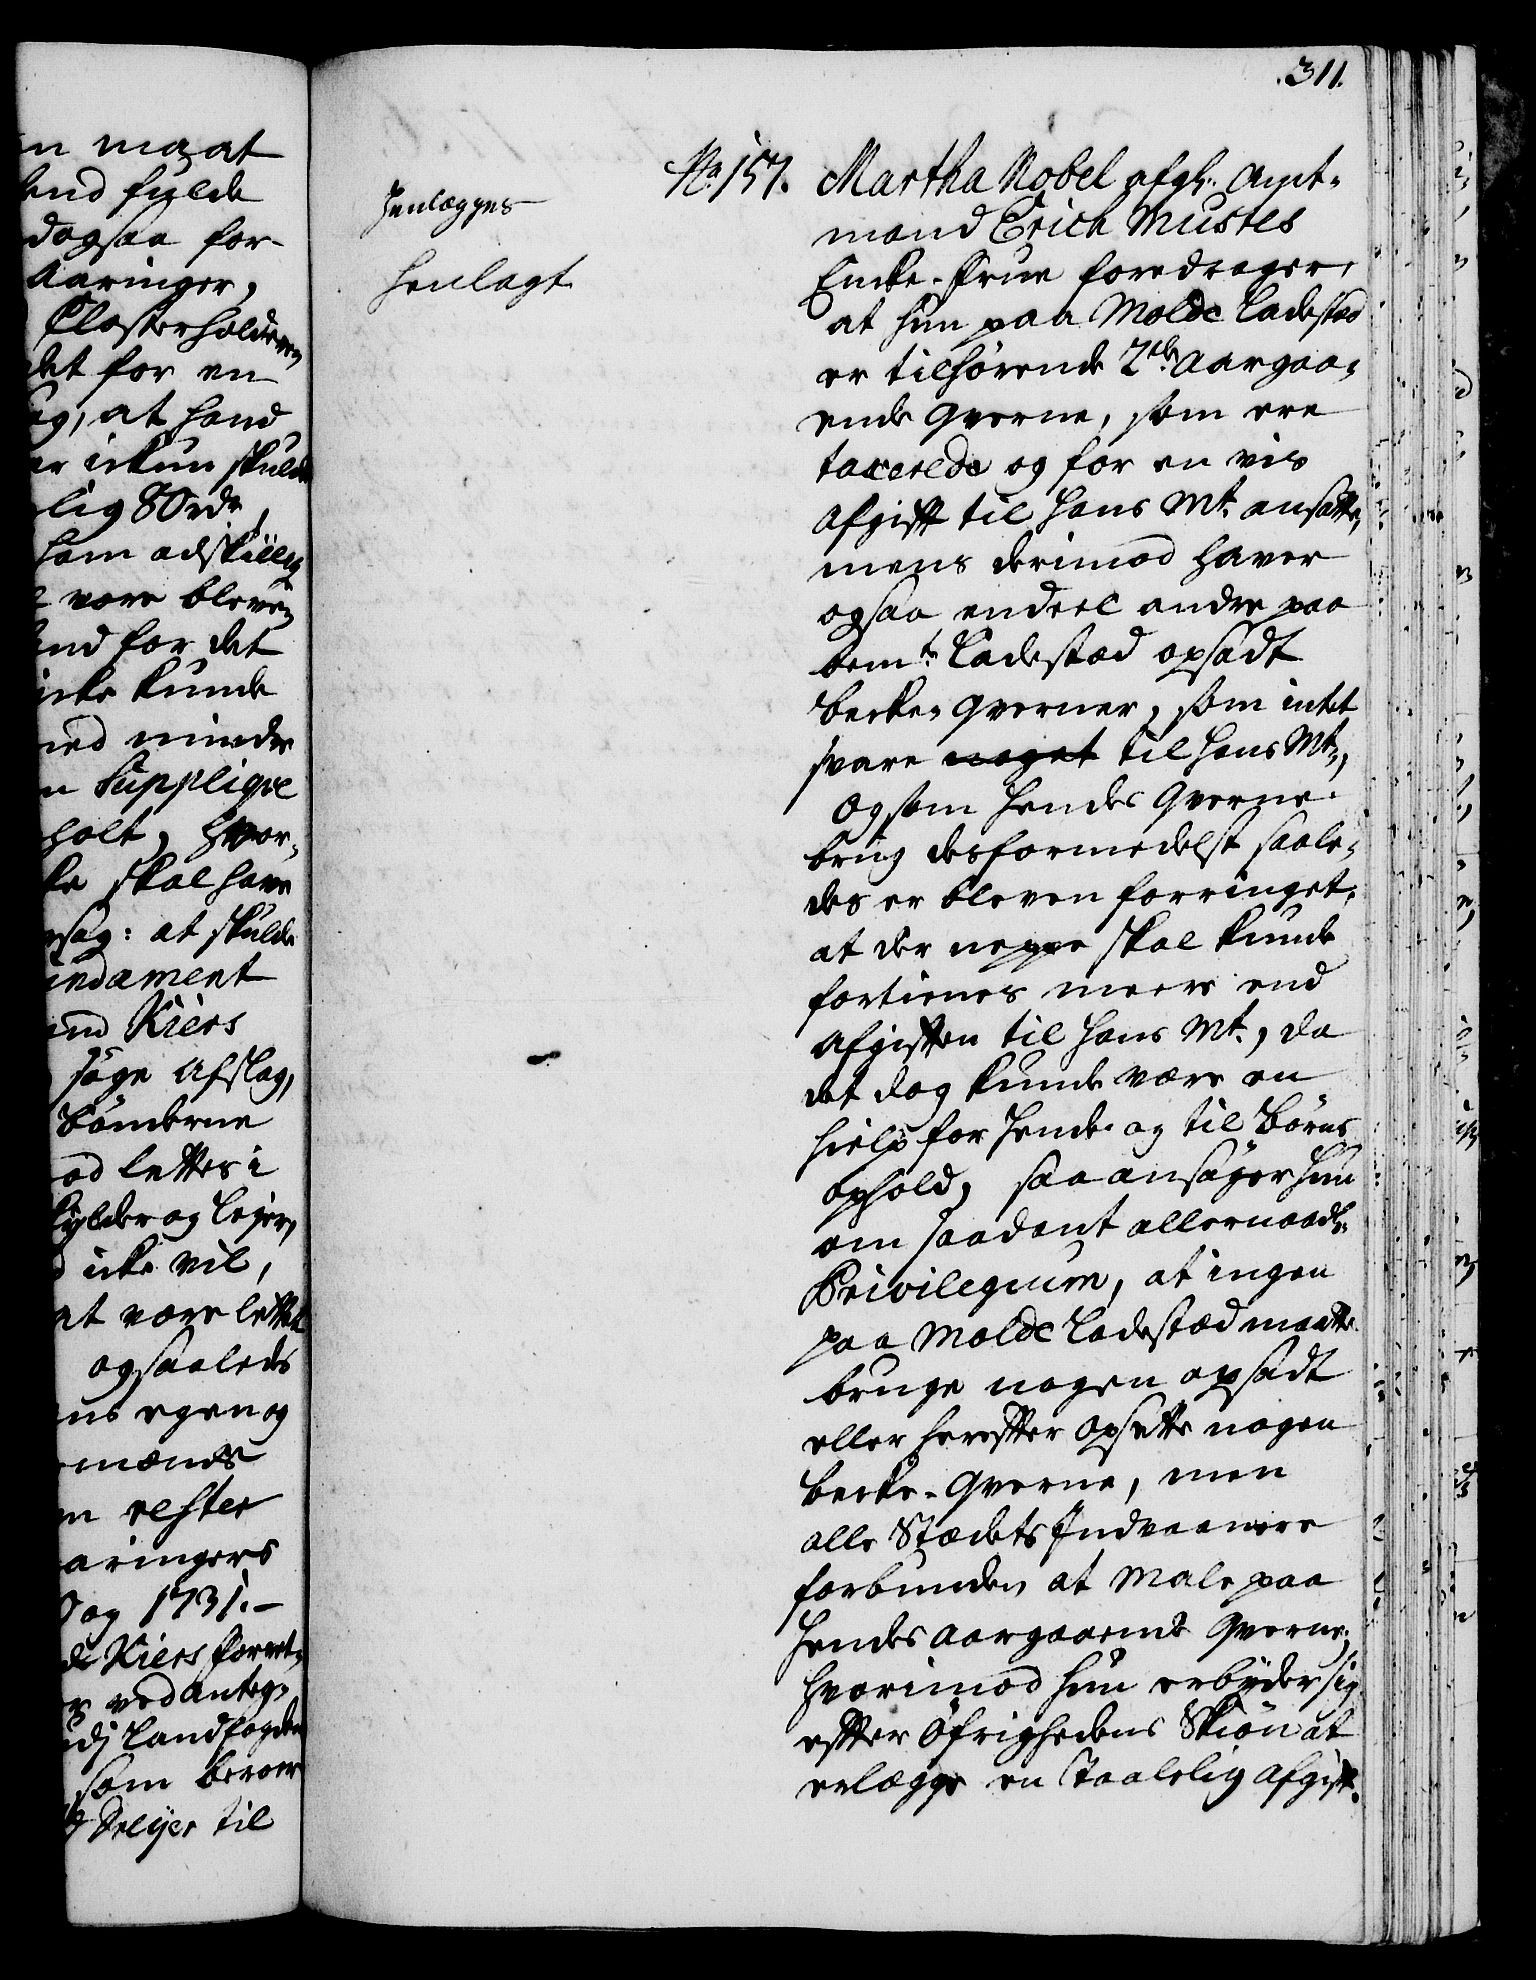 311.
No. 157.
Henlægges
Henlagt
Martha Nobel afgl. Amt-
mand Erich Mustes
Encke-Frue foredrager,
at hun paa Molde Ladestæd
er tilhørende 2de Aargaa-
ende Qverne, som ere
taxerede og for en vis
Afgift til Hans Mt. ansatte,
mens derimod haver
ogsaa endeel andre paa
bemte Ladestæd opsadt
Becke-Qverner, som intet
svare noget til Hans Mt.,
og som hendes Qverne-
brug desformedelst saale-
des er bleven forringet,
at der neppe skal kunde
fortienes meere end
Afgiften til Hans Mt., da
det dog kunde være en
hielp for hende og til Børns
ophold, saa ansøger hun
om saadant allernaad:
Privilegium, at ingen
paa Molde Ladestæd maatte
bruge nogen opsadt
eller herefter opsette nogen
Becke-Qverne, men
alle Stædets Indvaanere
forbunden at Male paa
hendes Aargaaende Qverne,
hvorimod hun erbyder sig
efter Øfrighedens Skiøn at
erlægge en Taalelig Afgift.
maat
fulde
dogsaa for-
Aaringer,
Closterholderen
det for en
at hand
er ickun skulde
lig 80 rdr,
ham adskillig
vare bleven
for det
icke kunde
mindre
Supplique
holt, hvor-
skal have
sag: at skulde
Fundament
Kiers
søge Afslag,
Bønderne
lettes i
skylder og Leyer,
icke vil,
at være lettet
og saaledes
egen og
mænds
efter
Aaringers
og 1731.-
Kiers forret-
ved anteg-
Landfogden
som beroer
Deliger til